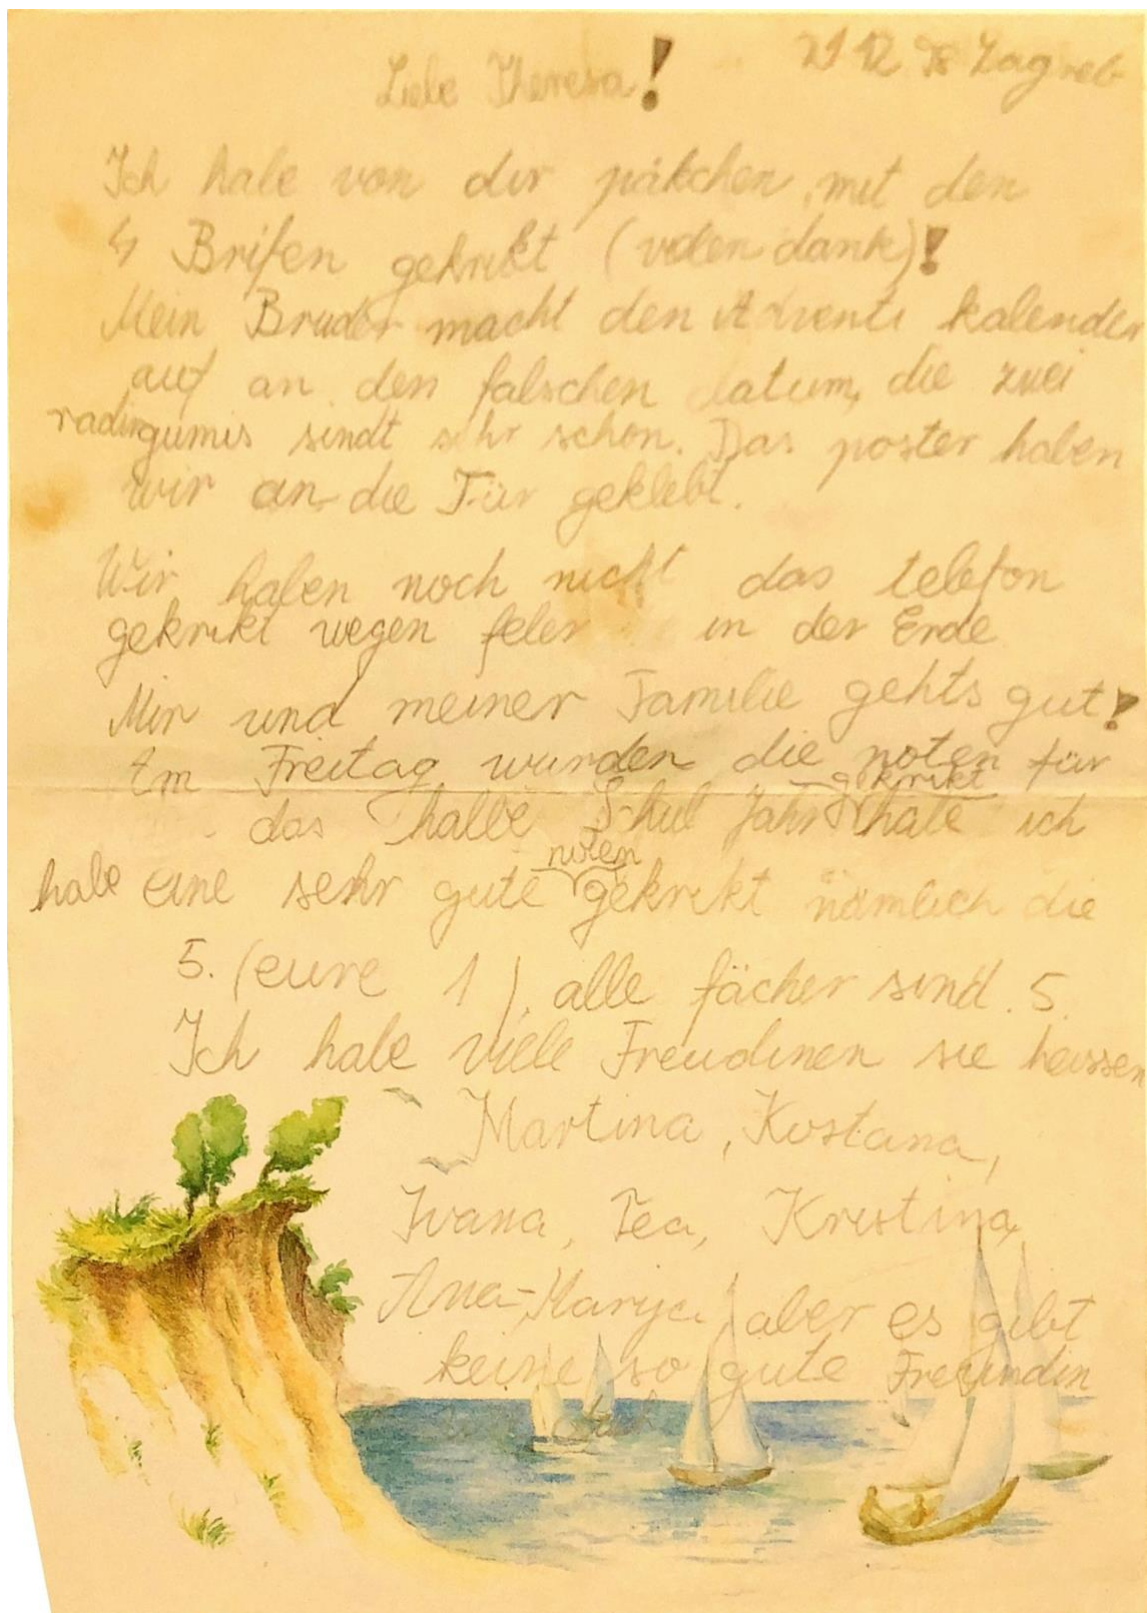 21 12 98 Zagreb
Liebe Theresa!
Ich habe von dir päkchen, mit den
4 Brifen gekrikt (vielen dank)!
Mein Bruder macht den Advents kalender
auf an den falschen datum, die zwei
radirgumis sindt sehr schon. Das poster haben
wir an die Tür geklebt.
Wir haben noch nicht das telefon
gekrikt wegen feler in der Erde
Mir und meiner Familie gehts gut!
Am Freitag wurden die noten für
gekrikt
das halbe Schul jahr hate ich
noten
habe eine sehr gute gekrikt nämlich die
5. (eure 1), alle fächer sind. 5.
Ich habe viele Freudinen sie heissen
Martina, Kostana,
Ivana, Tea, Kristina,
Ana-Marija, aber es gibt
keine so gute Freundin